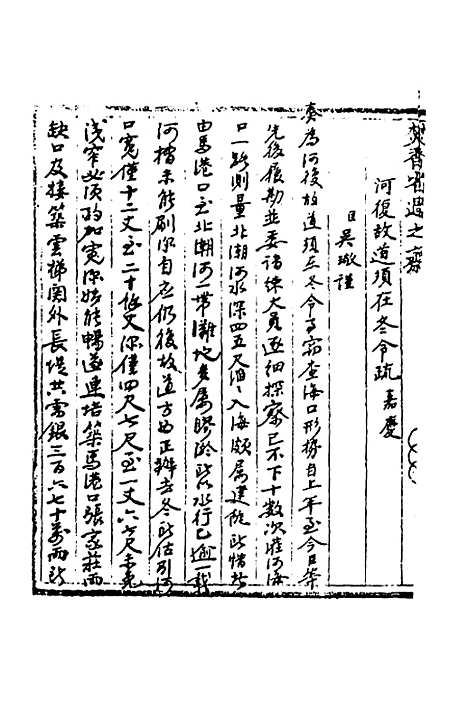 焚香省過之齋
河復故道須在冬令疏 嘉慶
臣吴璥謹
奏為河復故道須在冬令事竊查海口形勢自上年至今臣等
先後履勘並委諳練大員逐細探察已不下十數次灌河海
口一路測量北潮河水深四五尺洄入海頗属建瓴所惜者
由馬港口至北潮河一帶灘地多属膠淤所以水行已逾一載
河槽未能刷深自應仍復故道方為正辦去冬所估引河
口寬僅十二丈至二十餘丈深僅四尺七尺至一丈六七尺未免
淺窄必須酌加寬深始能暢達連堵築馬港口張家莊兩
缺口及接築雲梯関外長堤共需銀三百六七十萬兩所